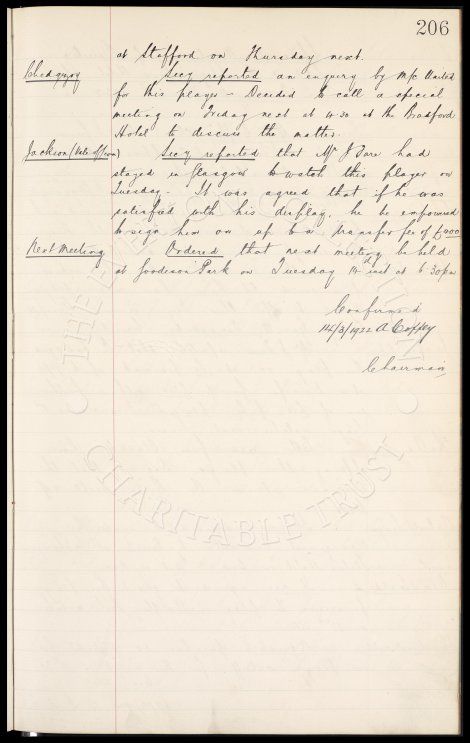 206
at Stafford on Thursday next.
Chedgzoy Secy reported an enquiry by M/c United
for this player - Decided to call a special
meeting on Friday next at 4.30 at the Bradford
Hotel to discuss the matter.
Jackson (Kirk Secy reported that Mr J Fare had
stayed in Glasgow to watch this player on
Tuesday - It was agreed that if he was
satisfied with his display, he be empowered
to sign him on up to a transfer fee of
Next Meeting Ordered that next meeting be held
at Goodison Park on Tuesday 14 inst at 6.30pm
Confirmed
14/3/1922 A Coffey
Chairman
THE EVERTON COLLECTION
CHARITABLE TRUST